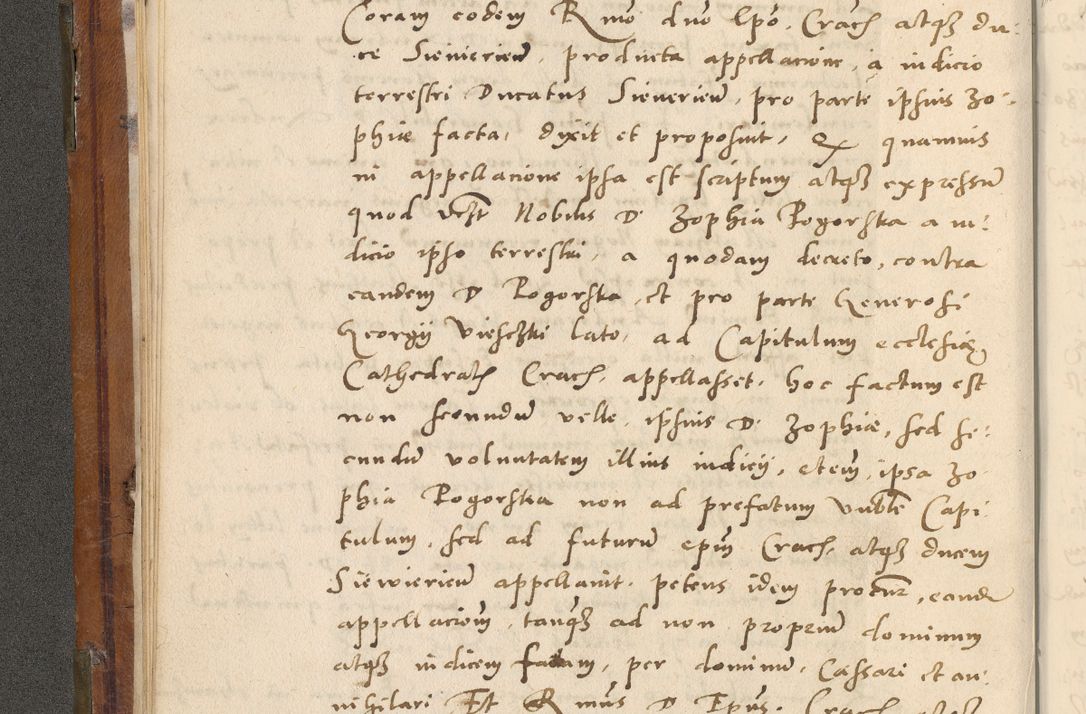 Coram eodem Rmo dno Epo. Crach atqʒ du:
ce Sieuierieñ, producta appellacione, a iudicio
terrestri Ducatus Sieuerieñ, pro parte ipsius Zo:
phiæ facta, dixit et proposuit, Q quamuis
in appellacione ipsa est scriptum atqʒ expressũ
quod Nobilis D. Zophia Rogorska a iu:
dicio ipso terrestri, a quodam decreto, contra
eandem D Rogorska, et pro parte Generosi
Georgij lato, ad Capitulum ecclesiæ
Cathedral Crach, appellasset. hoc factum est
non secundũ velle, ipsius D. Zophiæ, sed se:
cundũ voluntatem illius iudicij, etem̃, ipsa Zo
phia Rogorska non ad prefatum Capi:
tulum, sed ad futurũ epm̃ Crach, atqʒ ducem
Siewierieñ appellauit. petens idem procur, eandẽ
appellacionẽ, tanqʒ ad non propriũ dominum
atqʒ iudicem factam, per dominũ, Cassari et an:
nihilari Et Rmus D Epus. Crach atqʒ